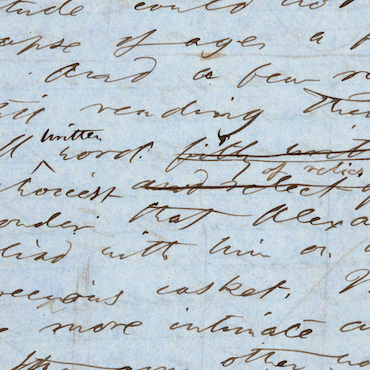 tude could no
apse of ages a
And a few
reading
written
word.
of relics
hoicest and select of
onder that Alexa
liad with him on
recious casket.
more intimate
other wo